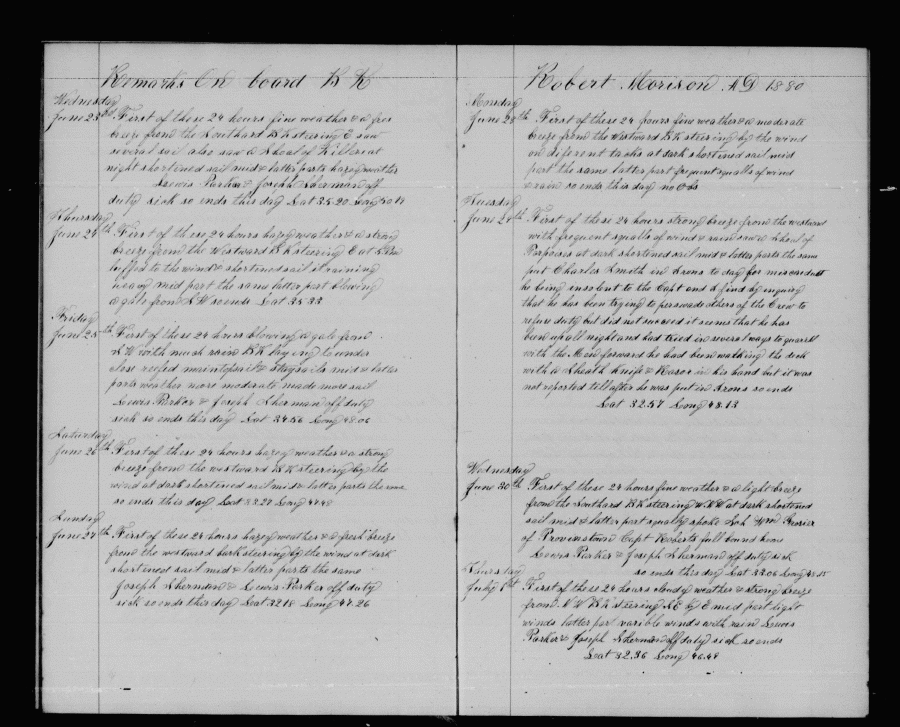 Remarks On board B K
Wednesday
June 23rd First of these 24 hours fine weather & a fres
breeze from the Southard B K steering E saw
several sail also saw a Shoal of Killers at
night shortined sail mid & latter parts hazey weather
Lewis Parker & Joseph Sherman off
duty sick so ends this day Lat 35.20 Long
Thursday
June 24th First of these 24 hours hazey weather & a strong
breeze from the Westward B K steering E at
luffed to the wind & shortined sail it raining
heavy mid part the same latter part blowing
a gale from S W so ends Lat 35.35
Friday
June 25th First of these 24 hours blowing a gale from
S W with much rain B K lay ing to under
close reefed maintopsail & staysails mid & latter
parts weather more moderate made more sail
Lewis Parker & Joseph Sherman off duty
sick so ends this day Lat 34.56 Long 48.06
Saturday
June 26th First of these 24 hours hazey weather & a strong
breeze from the westward B K steering by the
wind at dark shortened sail mid & latter parts the same
so ends this day Lat 33.27 Long 47.48
Sunday
June 27th First of these 24 hours hazey weather & a fresh breeze
from the westward bark steering by the wind at dark
shortined sail mid & latter parts the same
Joseph Sherman & Lewis Parker off duty
sick so ends this day Lat 32.18 Long 47.26
Robert Morison AD 1880
Monday
June 28th First of these 24 fours fine weather & a moderate
breeze from the Westward B K steering by the wind
on diferent tacks at dark shortined sail mid
part the same latter part frequent squalls of wind
& rain so ends this day no Obs
Tuesday
June 29th First of these 24 hours strong breeze from the westward
with frequent squalls of wind & rain saw a Shoal of
Porpoises at dark shortened sail mid & latter parts the same
put Charles Smith in Irons to day for misconduct
he being insolent to the Capt and I find by inquiry
that he has been trying to perswade others of the Crew to
refuse duty but did not succeed it seems that he has
been up all night and had tried in several ways to quarrel
with the Men forward he had been walking the deck
with a Sheath Knife & Rasor in his hand but it was
not reported till after he was put in Irons so ends
Lat 32.57 Long 48.13
Wednesday
June 30th First of these 24 hours fine weather & a light breeze
from the Southard B K steering W N W at dark shortened
sail mid & latter part squally spoke Sch Wm Grosier
of Provinstown Capt Roberts full bound home
Lewis Parker & Joseph Sherman off duty sick
so ends this day Lat 33.06 Long 48.15
Thursday
July 1st First of these 24 hours cloudy weather & strong breeze
from N W B K steering S E by E mid part light
winds latter part varible winds with rain Lewis
Parker & Joseph Sherman off duty sick so ends
Lat 32.36 Long 46.48